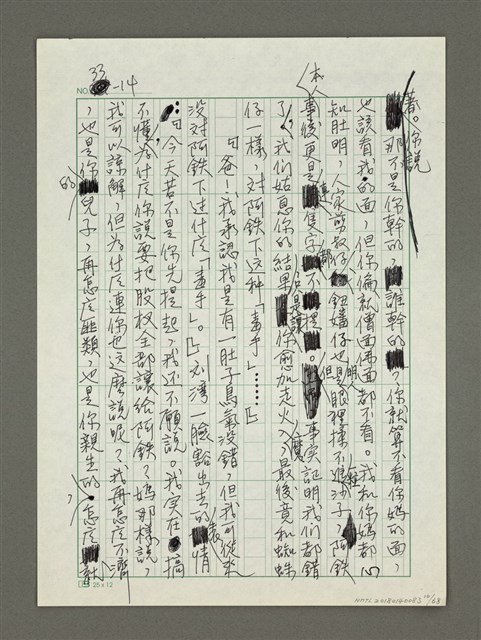 33
NO. -14
著。你說
那不是你幹的,誰幹的?你就算不看你媽的面,
也該看我的面,但你偏就僧面佛面都不看。我和你媽都心
知肚明,人家剪教仔、鈕嬸仔也是明眼人,但眼裡揉不進沙子,阿鐵本人
事後更是連隻字都不提。事實証明我們都錯
了,我們姑息你的結果,只是讓你愈加走火入魔,最後竟和蜘蛛
仔一樣,對阿鐵下這种「毒手」……」
「爸!我承認我是有一肚子鳥氣沒錯,但我可從來
沒對阿鐵下过什庅「毒手」。」必灣一臉豁出去的表情
:「今天若不是你先提起,我还不願說。我实在搞
不懂,为什庅你說要把股权全部讓給阿鐵?媽那樣說,
我可以諒解,但为什庅連你也这麼說呢?我再怎庅不濟
,也是你的兒子,再怎庅匪類,也是你親生的,怎庅
25 x 12